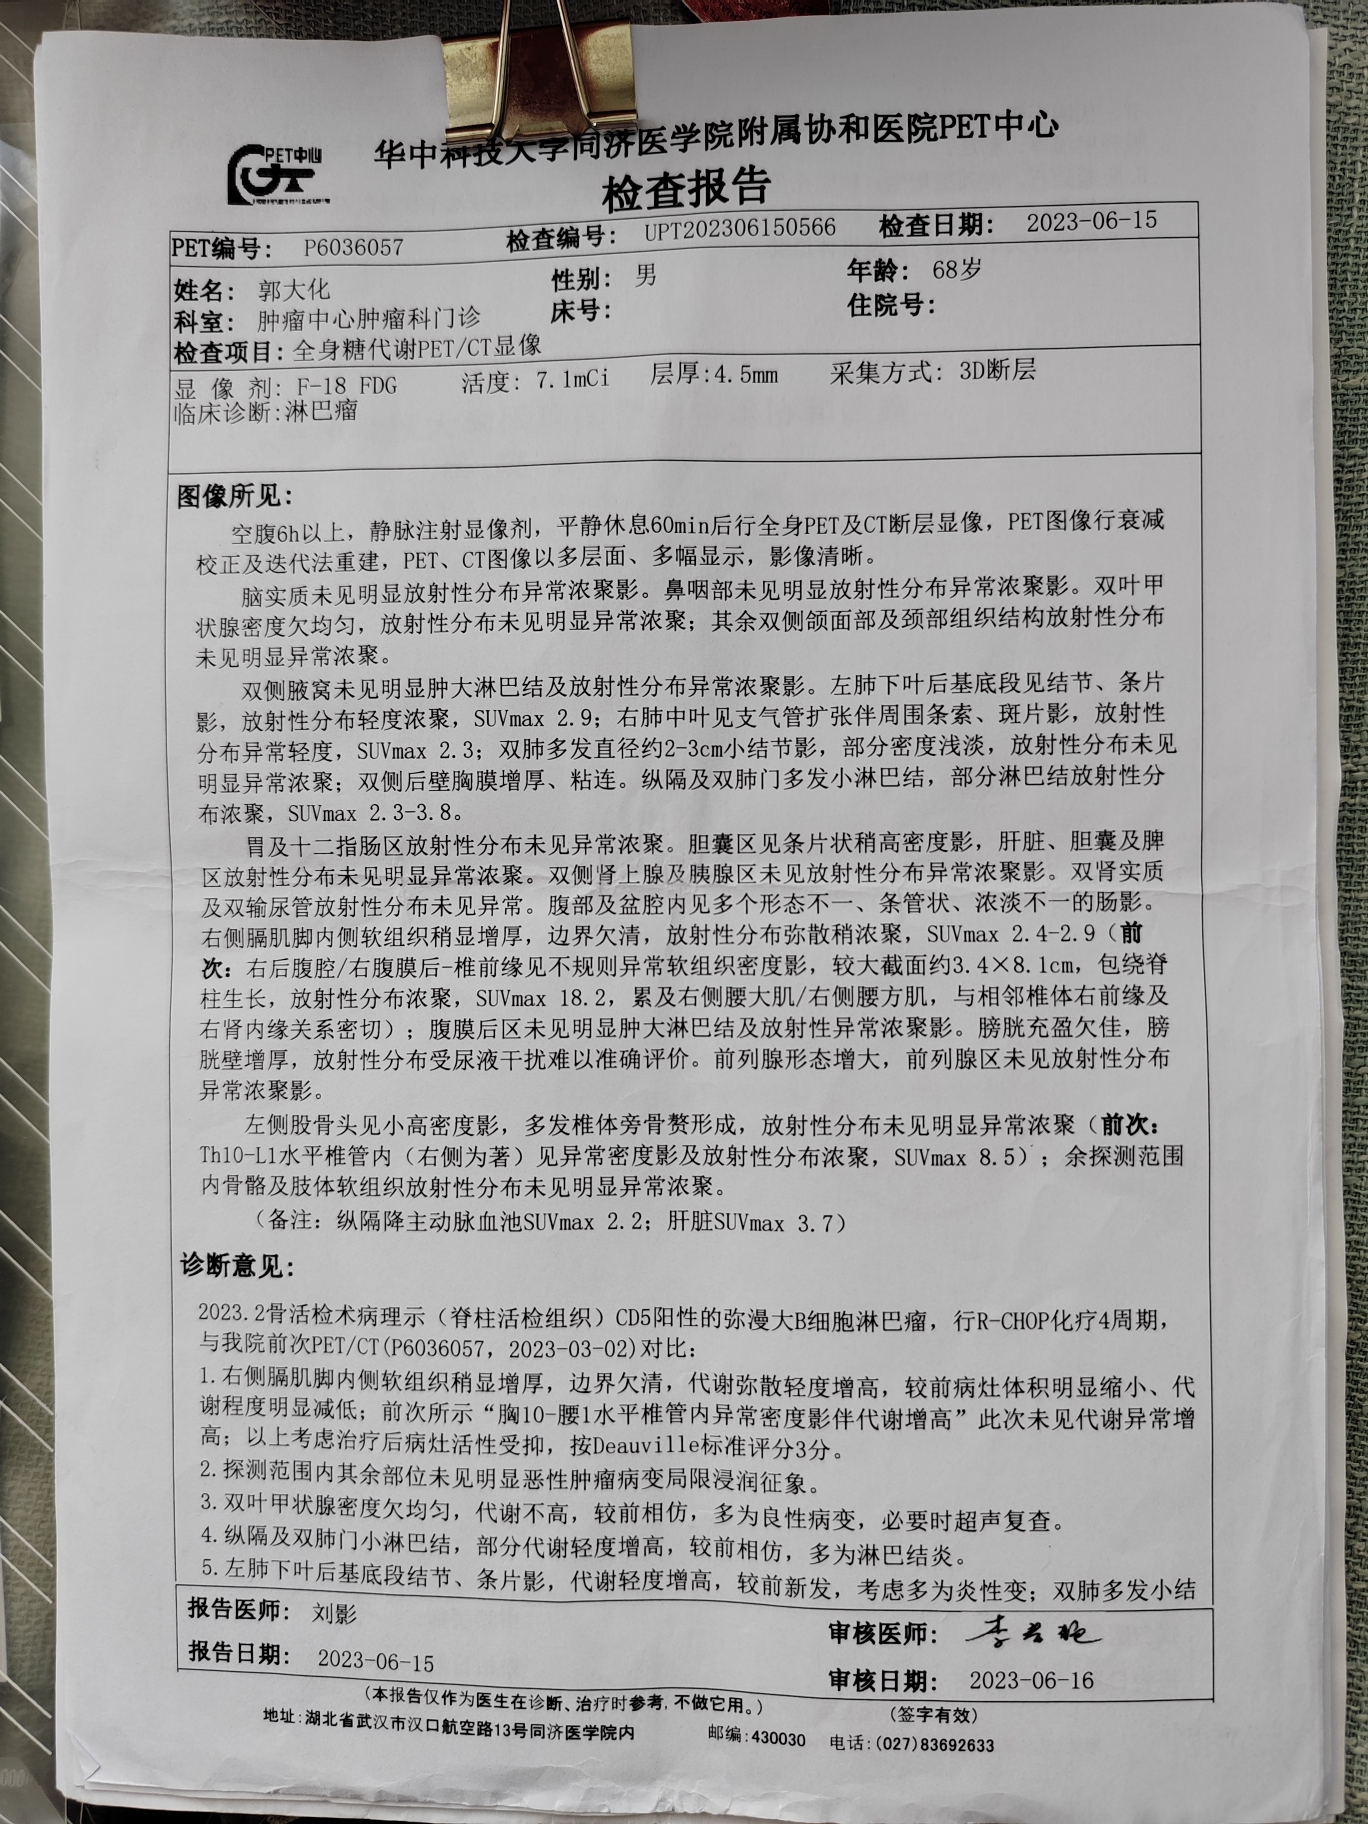 华中科技大学同济医学院附属协和医院PET中心
PET中心
检查报告
PET编号: P6036057 检查编号: UPT202306150566 检查日期: 2023-06-15
姓名: 郭大化 性别: 男 年龄: 68岁
科室: 肿瘤中心肿瘤科门诊 床号: 住院号:
检查项目:全身糖代谢PET/CT显像
显 像 剂: F-18 FDG 活度: 7.1mCi 层厚:4.5mm 采集方式: 3D断层
临床诊断:淋巴瘤
图像所见:
空腹6h以上，静脉注射显像剂，平静休息60min后行全身PET及CT断层显像，PET图像行衰减
校正及迭代法重建，PET、CT图像以多层面、多幅显示，影像清晰。
脑实质未见明显放射性分布异常浓聚影。鼻咽部未见明显放射性分布异常浓聚影。双叶甲
状腺密度欠均匀，放射性分布未见明显异常浓聚；其余双侧颌面部及颈部组织结构放射性分布
未见明显异常浓聚。
双侧腋窝未见明显肿大淋巴结及放射性分布异常浓聚影。左肺下叶后基底段见结节、条片
影，放射性分布轻度浓聚，SUVmax 2.9；右肺中叶见支气管扩张伴周围条索、斑片影，放射性
分布异常轻度，SUVmax 2.3；双肺多发直径约2-3cm小结节影，部分密度浅淡，放射性分布未见
明显异常浓聚；双侧后壁胸膜增厚、粘连。纵隔及双肺门多发小淋巴结，部分淋巴结放射性分
布浓聚，SUVmax 2.3-3.8。
胃及十二指肠区放射性分布未见异常浓聚。胆囊区见条片状稍高密度影，肝脏、胆囊及脾
区放射性分布未见明显异常浓聚。双侧肾上腺及胰腺区未见放射性分布异常浓聚影。双肾实质
及双输尿管放射性分布未见异常。腹部及盆腔内见多个形态不一、条管状、浓淡不一的肠影。
右侧膈肌脚内侧软组织稍显增厚，边界欠清，放射性分布弥散稍浓聚，SUVmax 2.4-2.9（前
次：右后腹腔/右腹膜后-椎前缘见不规则异常软组织密度影，较大截面约3.4×8.1cm，包绕脊
柱生长，放射性分布浓聚，SUVmax 18.2，累及右侧腰大肌/右侧腰方肌，与相邻椎体右前缘及
右肾内缘关系密切）；腹膜后区未见明显肿大淋巴结及放射性异常浓聚影。膀胱充盈欠佳，膀
胱壁增厚，放射性分布受尿液干扰难以准确评价。前列腺形态增大，前列腺区未见放射性分布
异常浓聚影。
左侧股骨头见小高密度影，多发椎体旁骨赘形成，放射性分布未见明显异常浓聚（前次：
Th10-L1水平椎管内（右侧为著）见异常密度影及放射性分布浓聚，SUVmax 8.5）；余探测范围
内骨骼及肢体软组织放射性分布未见明显异常浓聚。
（备注：纵隔降主动脉血池SUVmax 2.2；肝脏SUVmax 3.7）
诊断意见:
2023.2骨活检术病理示（脊柱活检组织）CD5阳性的弥漫大B细胞淋巴瘤，行R-CHOP化疗4周期，
与我院前次PET/CT(P6036057，2023-03-02)对比：
1.右侧膈肌脚内侧软组织稍显增厚，边界欠清，代谢弥散轻度增高，较前病灶体积明显缩小、代
谢程度明显减低；前次所示“胸10-腰1水平椎管内异常密度影伴代谢增高”此次未见代谢异常增
高；以上考虑治疗后病灶活性受抑，按Deauville标准评分3分。
2.探测范围内其余部位未见明显恶性肿瘤病变局限浸润征象。
3.双叶甲状腺密度欠均匀，代谢不高，较前相仿，多为良性病变，必要时超声复查。
4.纵隔及双肺门小淋巴结，部分代谢轻度增高，较前相仿，多为淋巴结炎。
5.左肺下叶后基底段结节、条片影，代谢轻度增高，较前新发，考虑多为炎性变；双肺多发小结
报告医师: 刘影 审核医师:
报告日期: 2023-06-15 审核日期: 2023-06-16
(本报告仅作为医生在诊断、治疗时参考，不做它用。) (签字有效)
地址:湖北省武汉市汉口航空路13号同济医学院内 邮编:430030 电话:(027)83692633